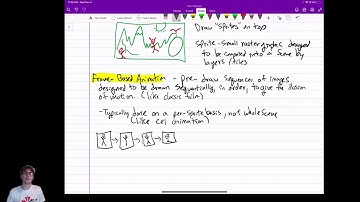 Draw "sprites" on top
Sprite - Small raster graphic designed
to be composed into a scene by
layers / tiles
Frame-Based Animation - pre-draw sequences of images
designed to be drawn sequentially, in order, to give the illusion
of motion. (like classic film)
- Typically done on a per-sprite basis, not whole scene
(like cel animation)